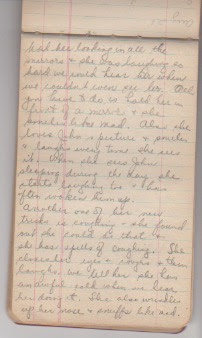 her looking in all the
mirrors & she was laughing so
hard we could hear her when
we couldn't even see her. All
you have to do is hold her in
front of a mirror & she
smiles like mad. Also she
loves John's picture & smiles
& laughs every time she sees
it. When she sees John
sleeping during the day she
starts laughing too &
often wakens him up.
Another one of her new
tricks is coughing - she found
out she could do that so
she has spells of coughing. She
closes her eyes & coughs & then
laughs. We tell her she has
an awful cold when we hear
her doing it. She also wrinkles
up her nose & sniffs like mad.